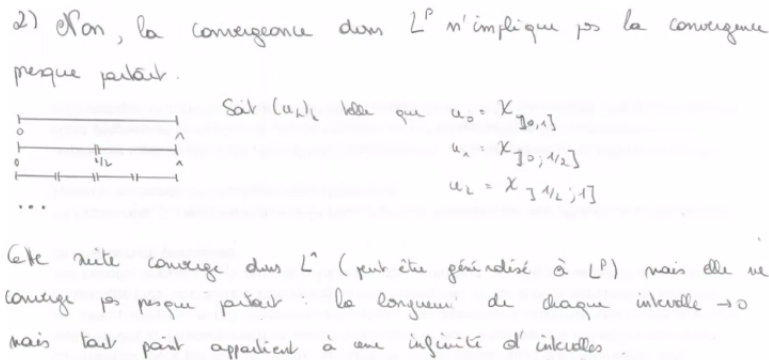 2) Non, la convergence dans L^p n'implique pas la convergence
presque partout.
Soit (u_k)_k telle que u_0 = χ_]0,1]
u_1 = χ_]0;1/2]
u_2 = χ_]1/2;1]
0 1
0 1/2 1
...
Cette suite converge dans L^1 (peut être généralisé à L^p) mais elle ne
converge pas presque partout : la longueur de chaque intervalle → 0
mais tout point appartient à une infinité d'intervalles.